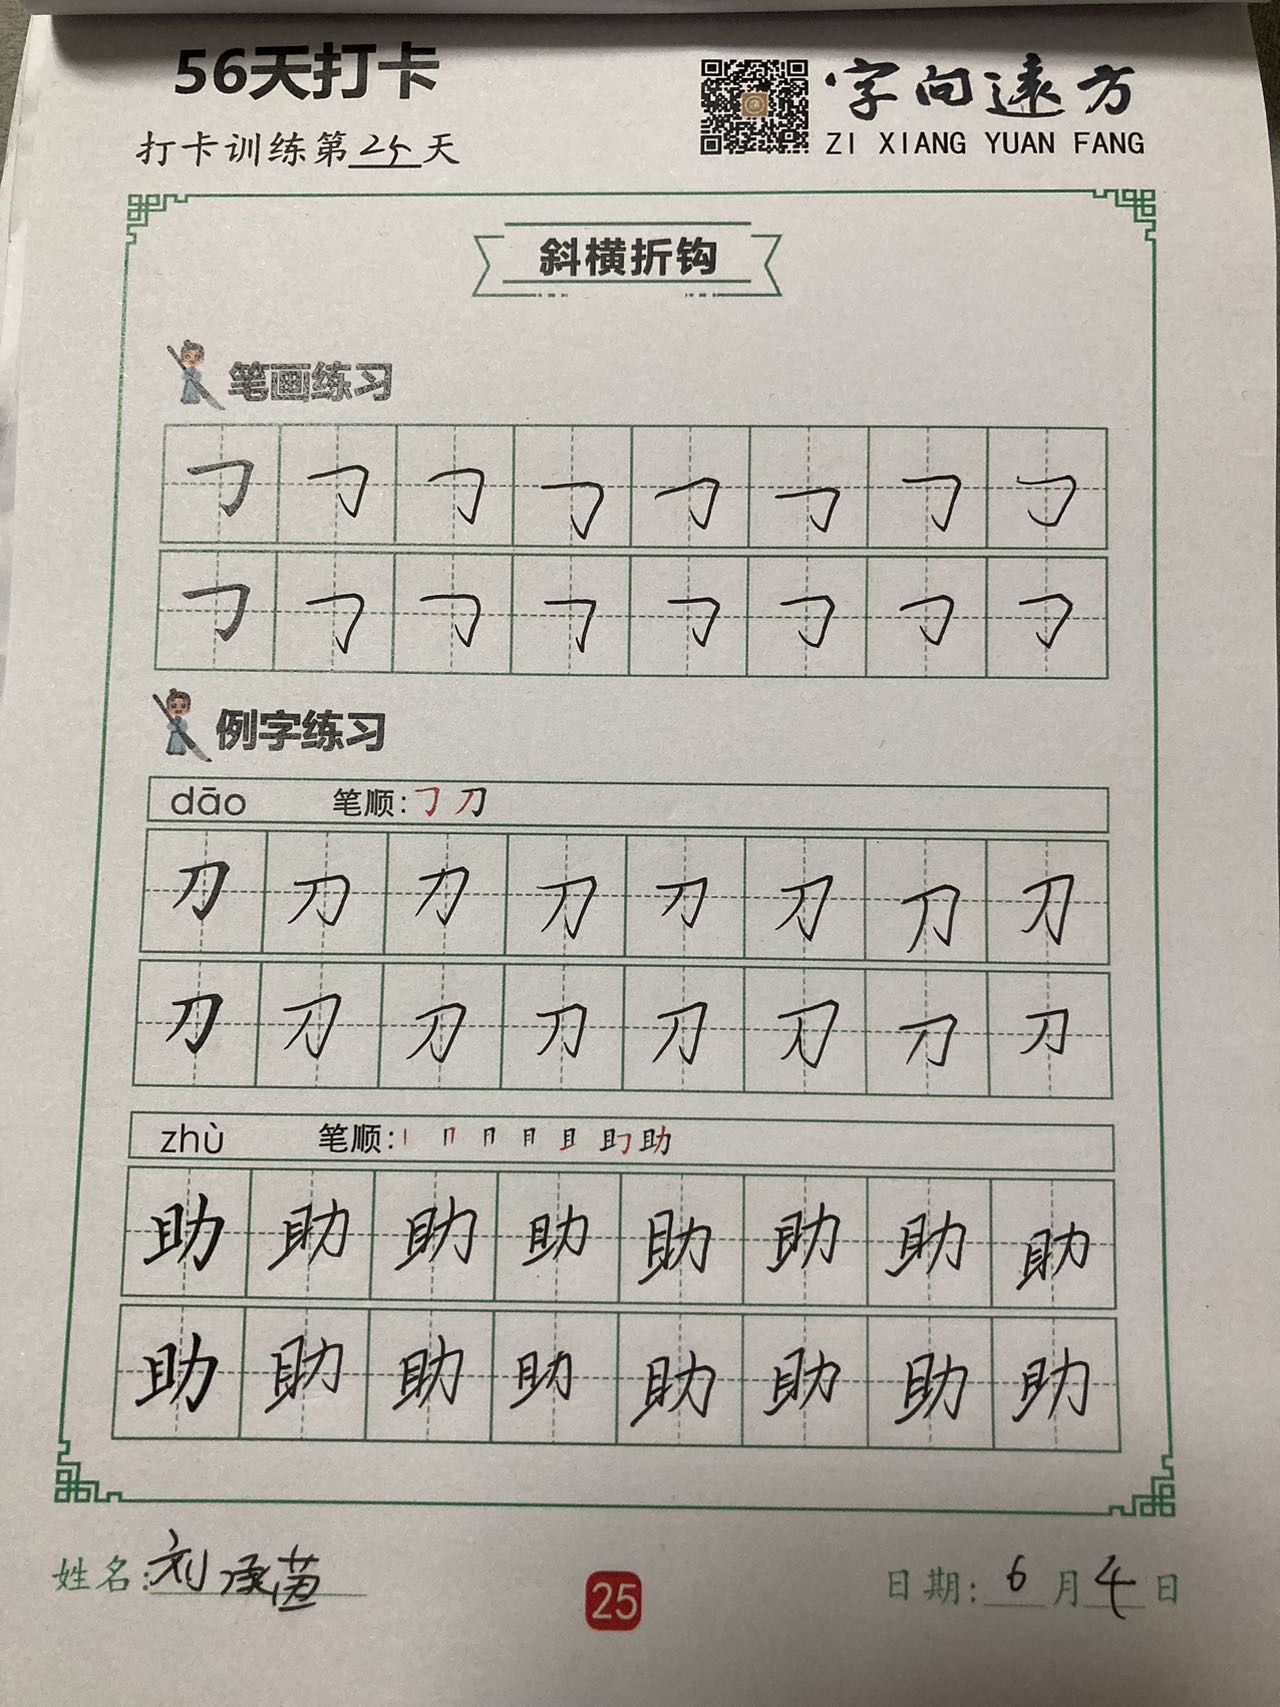 56天打卡
字向遠方
ZI XIANG YUAN FANG
打卡训练第25天
斜横折钩
笔画练习
㇆ ㇆ ㇆ ㇆ ㇆ ㇆ ㇆ ㇆
㇆ ㇆ ㇆ ㇆ ㇆ ㇆ ㇆ ㇆
例字练习
dāo 笔顺:㇆ 刀
刀 刀 刀 刀 刀 刀 刀 刀
刀 刀 刀 刀 刀 刀 刀 刀
zhù 笔顺:丨 冂 月 且 助
助 助 助 助 助 助 助 助
助 助 助 助 助 助 助 助
姓名:刘承茵
25
日期:6月4日